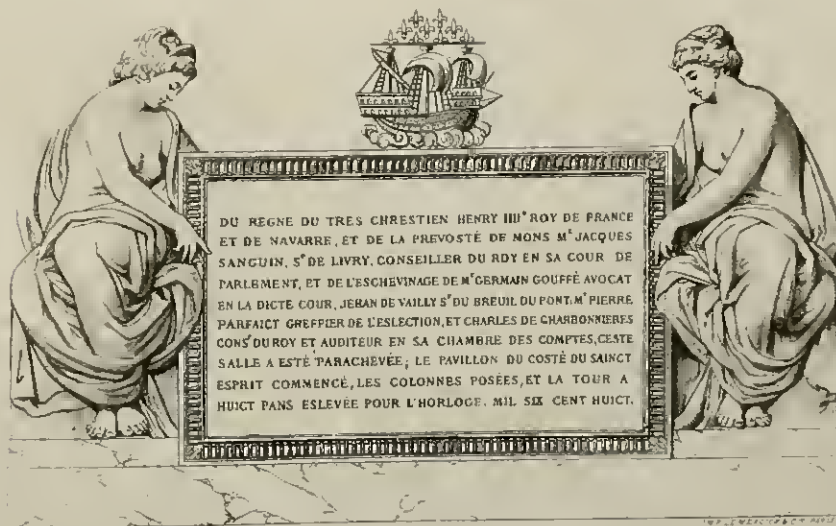 DU REGNE DU TRES CHRESTIEN HENRY IIIIᵉ ROY DE FRANCE
ET DE NAVARRE, ET DE LA PREVOSTÉ DE NONS Mᵉ JACQUES
SANGUIN, Sʳ DE LIVRY, CONSEILLER DU ROY EN SA COUR DE
PARLEMENT, ET DE L'ESCHEVINAGE DE Mᵉ GERMAIN GOUFFÉ AVOCAT
EN LA DICTE COUR, JEHAN DE VAILLY Sʳ DU BREUIL DU PONT, Mᵉ PIERRE
PARFAICT GREFFIER DE L'ESLECTION, ET CHARLES DE CHARBONNIERES
CONSʳ DU ROY ET AUDITEUR EN SA CHAMBRE DES COMPTES, CESTE
SALLE A ESTÉ PARACHEVÉE; LE PAVILLON DU COSTÉ DU SAINCT
ESPRIT COMMENCÉ, LES COLONNES POSÉES, ET LA TOUR A
HUICT PANS ESLEVÉE POUR L'HORLOGE. MIL SIX CENT HUICT.